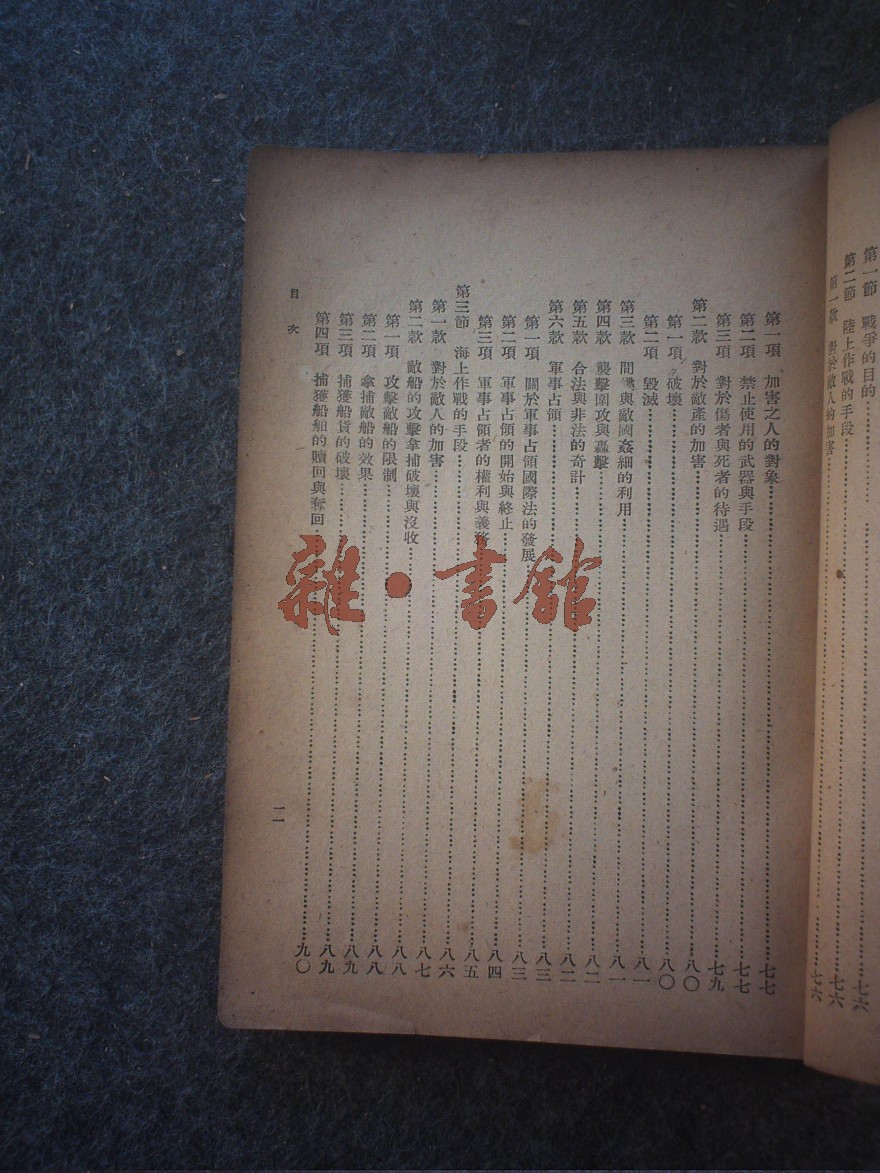 第一節 戰爭的目的……七六
第二節 陸上作戰的手段……七六
第一款 對於敵人的加害……七六
第一項 加害之人的對象……七七
第二項 禁止使用的武器與手段……七七
第三項 對於傷者與死者的待遇……七九
第二款 對於敵產的加害……八〇
第一項 破壞……八〇
第二項 毀滅……八一
第三款 間諜與敵國姦細的利用……八一
第四款 襲擊圍攻與轟擊……八二
第五款 合法與非法的奇計……八二
第六款 軍事占領……八三
第一項 關於軍事占領國際法的發展……八三
第二項 軍事占領的開始與終止……八四
第三項 軍事占領者的權利與義務……八五
第三節 海上作戰的手段……八六
第一款 對於敵人的加害……八七
第二款 敵船的攻擊拿捕破壞與沒收……八八
第一項 攻擊敵船的限制……八八
第二項 拿捕敵船的效果……八九
第三項 捕獲船貨的破壞……八九
第四項 捕獲船舶的贖回與奪回……九〇
目次
一一
雜·書館